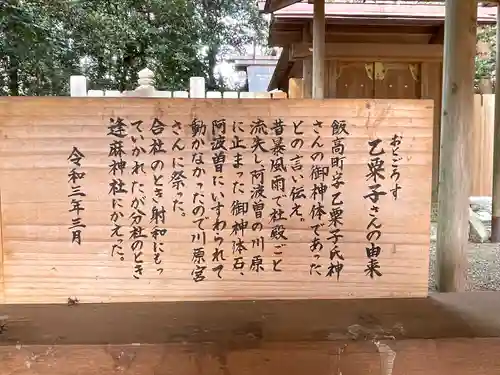 おとごろす
乙栗子さんの由来
飯高町字乙栗子氏神
さんの御神体であった
との言い伝え。
昔暴風雨で社殿ごと
流失し阿波曽の川原
に止まった御神体石、
阿波曽にいすわられて
動かなかったので川原宮
さんに祭った。
合社のとき射和にもっ
ていかれたが分社のとき
逢麻神社にかえった。
令和三年三月